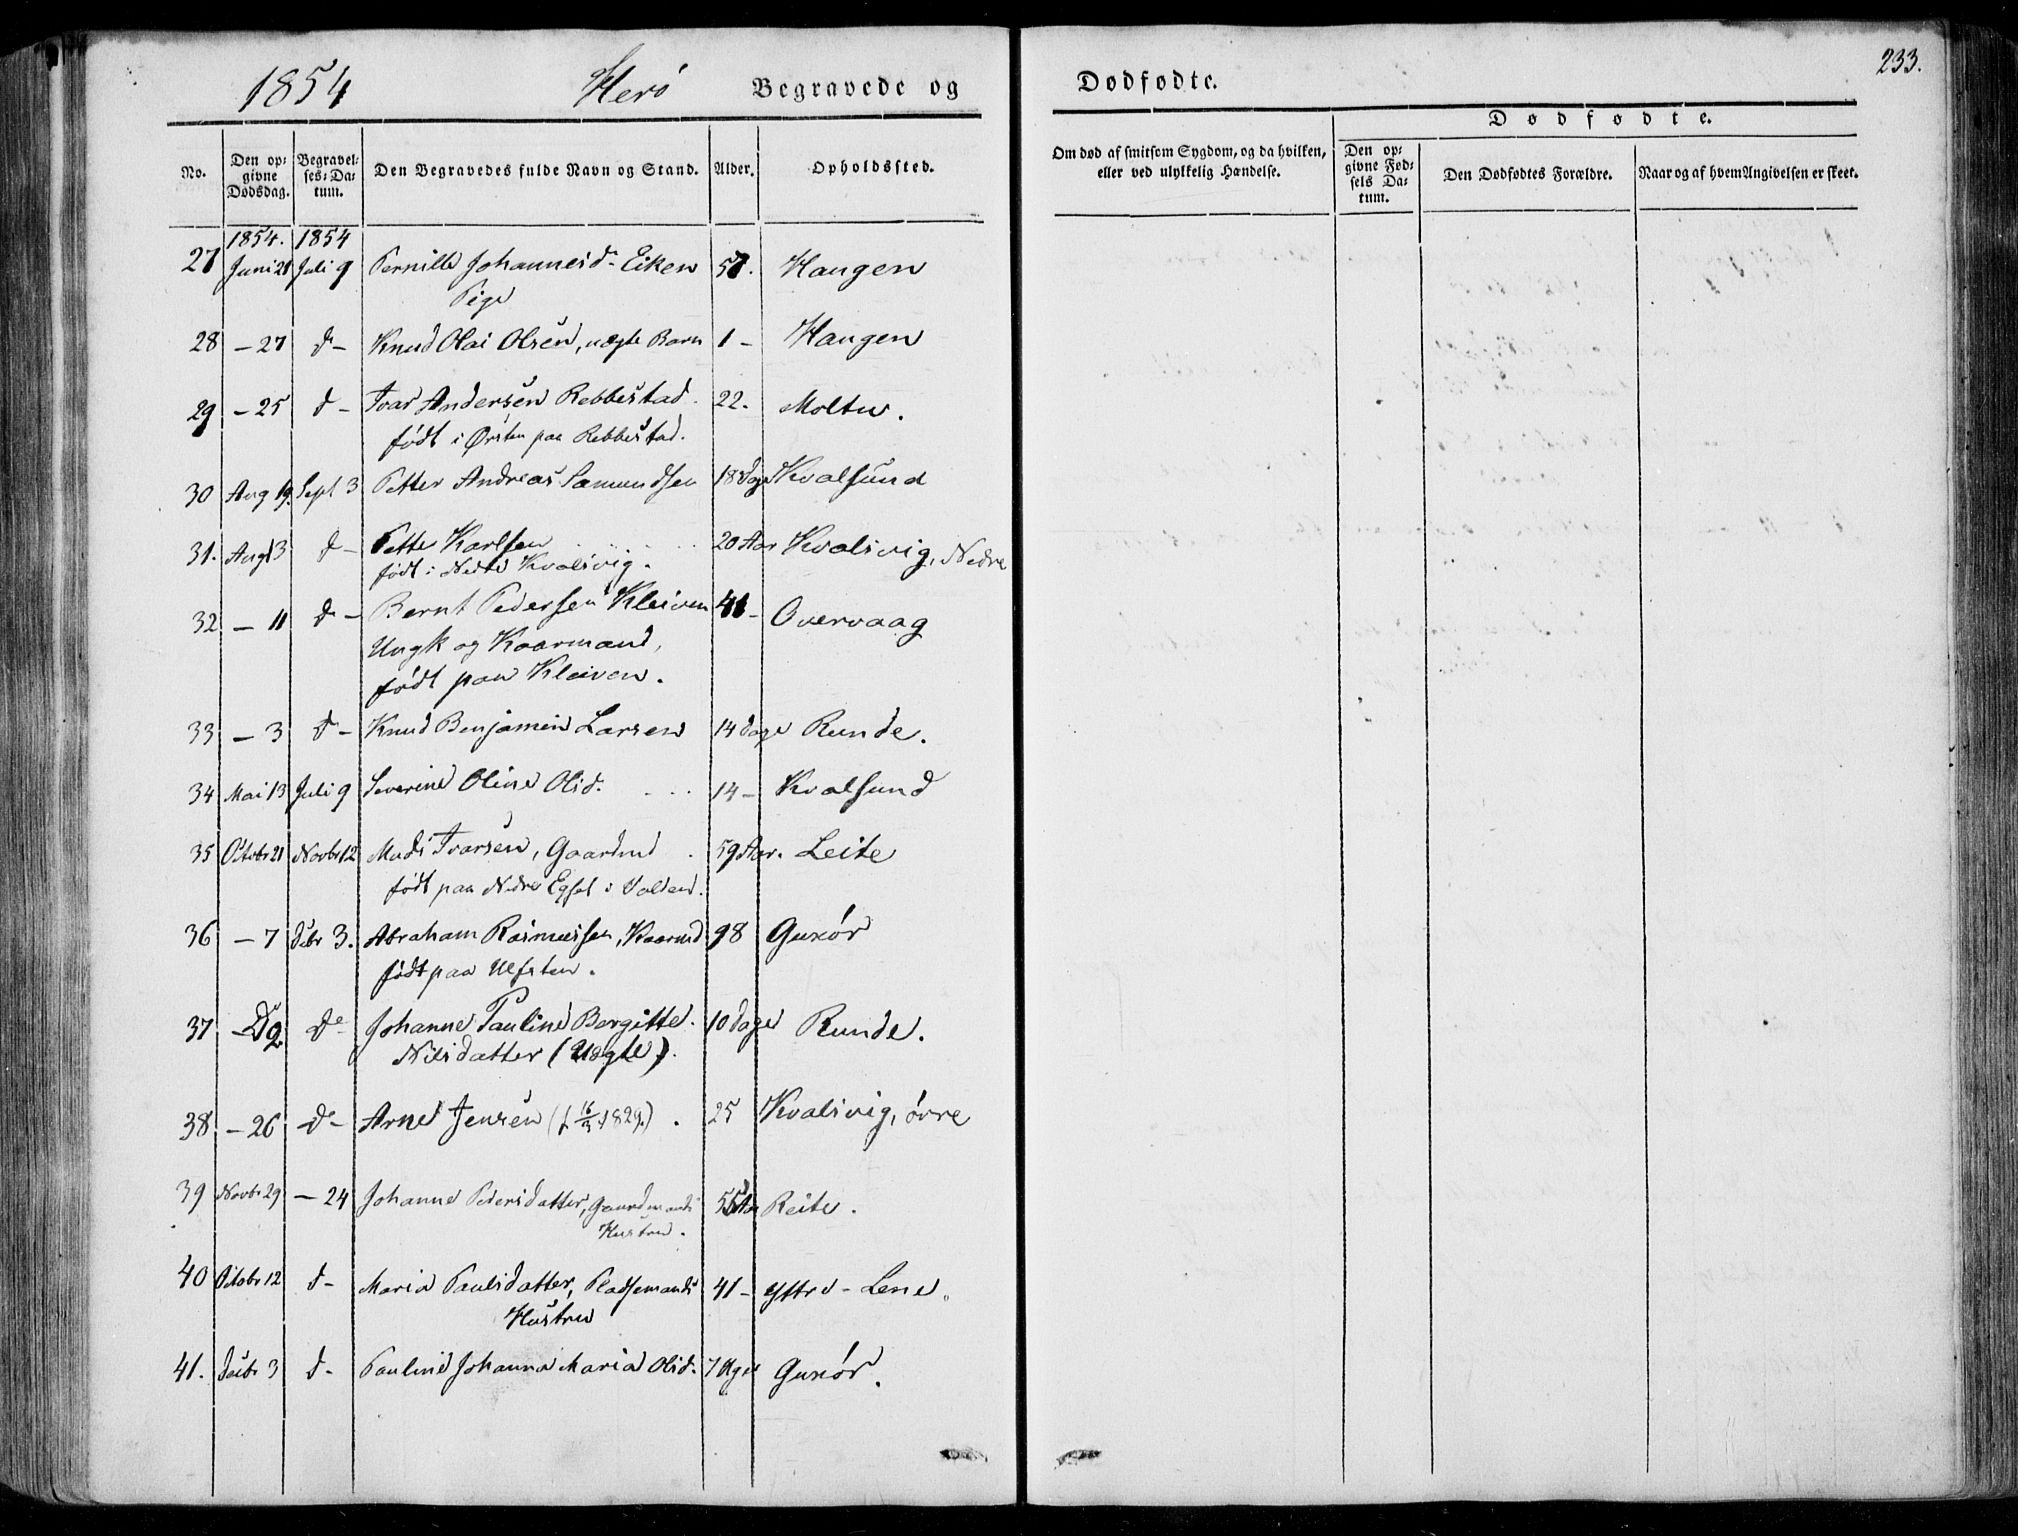 1854 Herö Begravede og Dødfødte. 233.
Dødfødte.
No. | Den op-givne Dødsdag. | Begravel-ses-Da-tum. | Den Begravedes fulde Navn og Stand. | Alder. | Opholdssted. | Om død af smitsom Sygdom, og da hvilken, eller ved ulykkelig Hændelse. | Den op-givne Fød-sels Da-tum. | Den Dødfødtes Forældre. | Naar og af hvem Angivelsen er skeet.
1854. 1854
27 Juni 21 Juli 9 Pernille Johannesd. Eiken 57. Haugen
Pige
28 – 27 d – Knud Olai Olsen, uægte Barn 1 – Haugen
29 – 25 d – Ivar Andersen Rebbestad. 22. Moltu.
født i Ørsten paa Rebbestad.
30 Aug 19. Sept 3 Petter Andreas Samundsen 18 dage Kvalsund
31. Aug 13 d – Petter Karlsen 20 Aar Kvalsvig, Nedre
født i Nedre Kvalsvig.
32 – 11 d – Bernt Pedersen Kleiven 41 – Overvaag
Ungk og Kaarmand,
født paa Kleiven.
33 – 3 d – Knud Benjamin Larsen 14 dage Runde.
34 Mai 13 Juli 9 Severine Oline Olsd. 14 – Kvalsund
35 Octobr 21 Novbr 12 Mads Ivarsen, Gaardmd 59 Aar. Leite
født paa Nedre Egset i Volden.
36 – 7 Decbr 3. Abraham Rasmussen, Kaarmd 98 Guxør
født paa Ulfsten.
37 – D 9. de – Johanne Pauline Bergitte 10 dage Runde.
Nilsdatter (Uægte).
38 – 26 – d – Arne Jensen (f. 16/3 1829.) . 25 Kvalsvig, övre
39 Novbr 29 – 24 Johanne Pedersdatter, Gaardmands 55 Aar Reite.
Hustru.
40 Octobr 12 d – Maria Paulsdatter, Pladsemands 41 – Yttre – Lene.
Hustru
41. Decbr 3 d – Pauline Johanna Maria Olsd. 7 Uger Guxør.